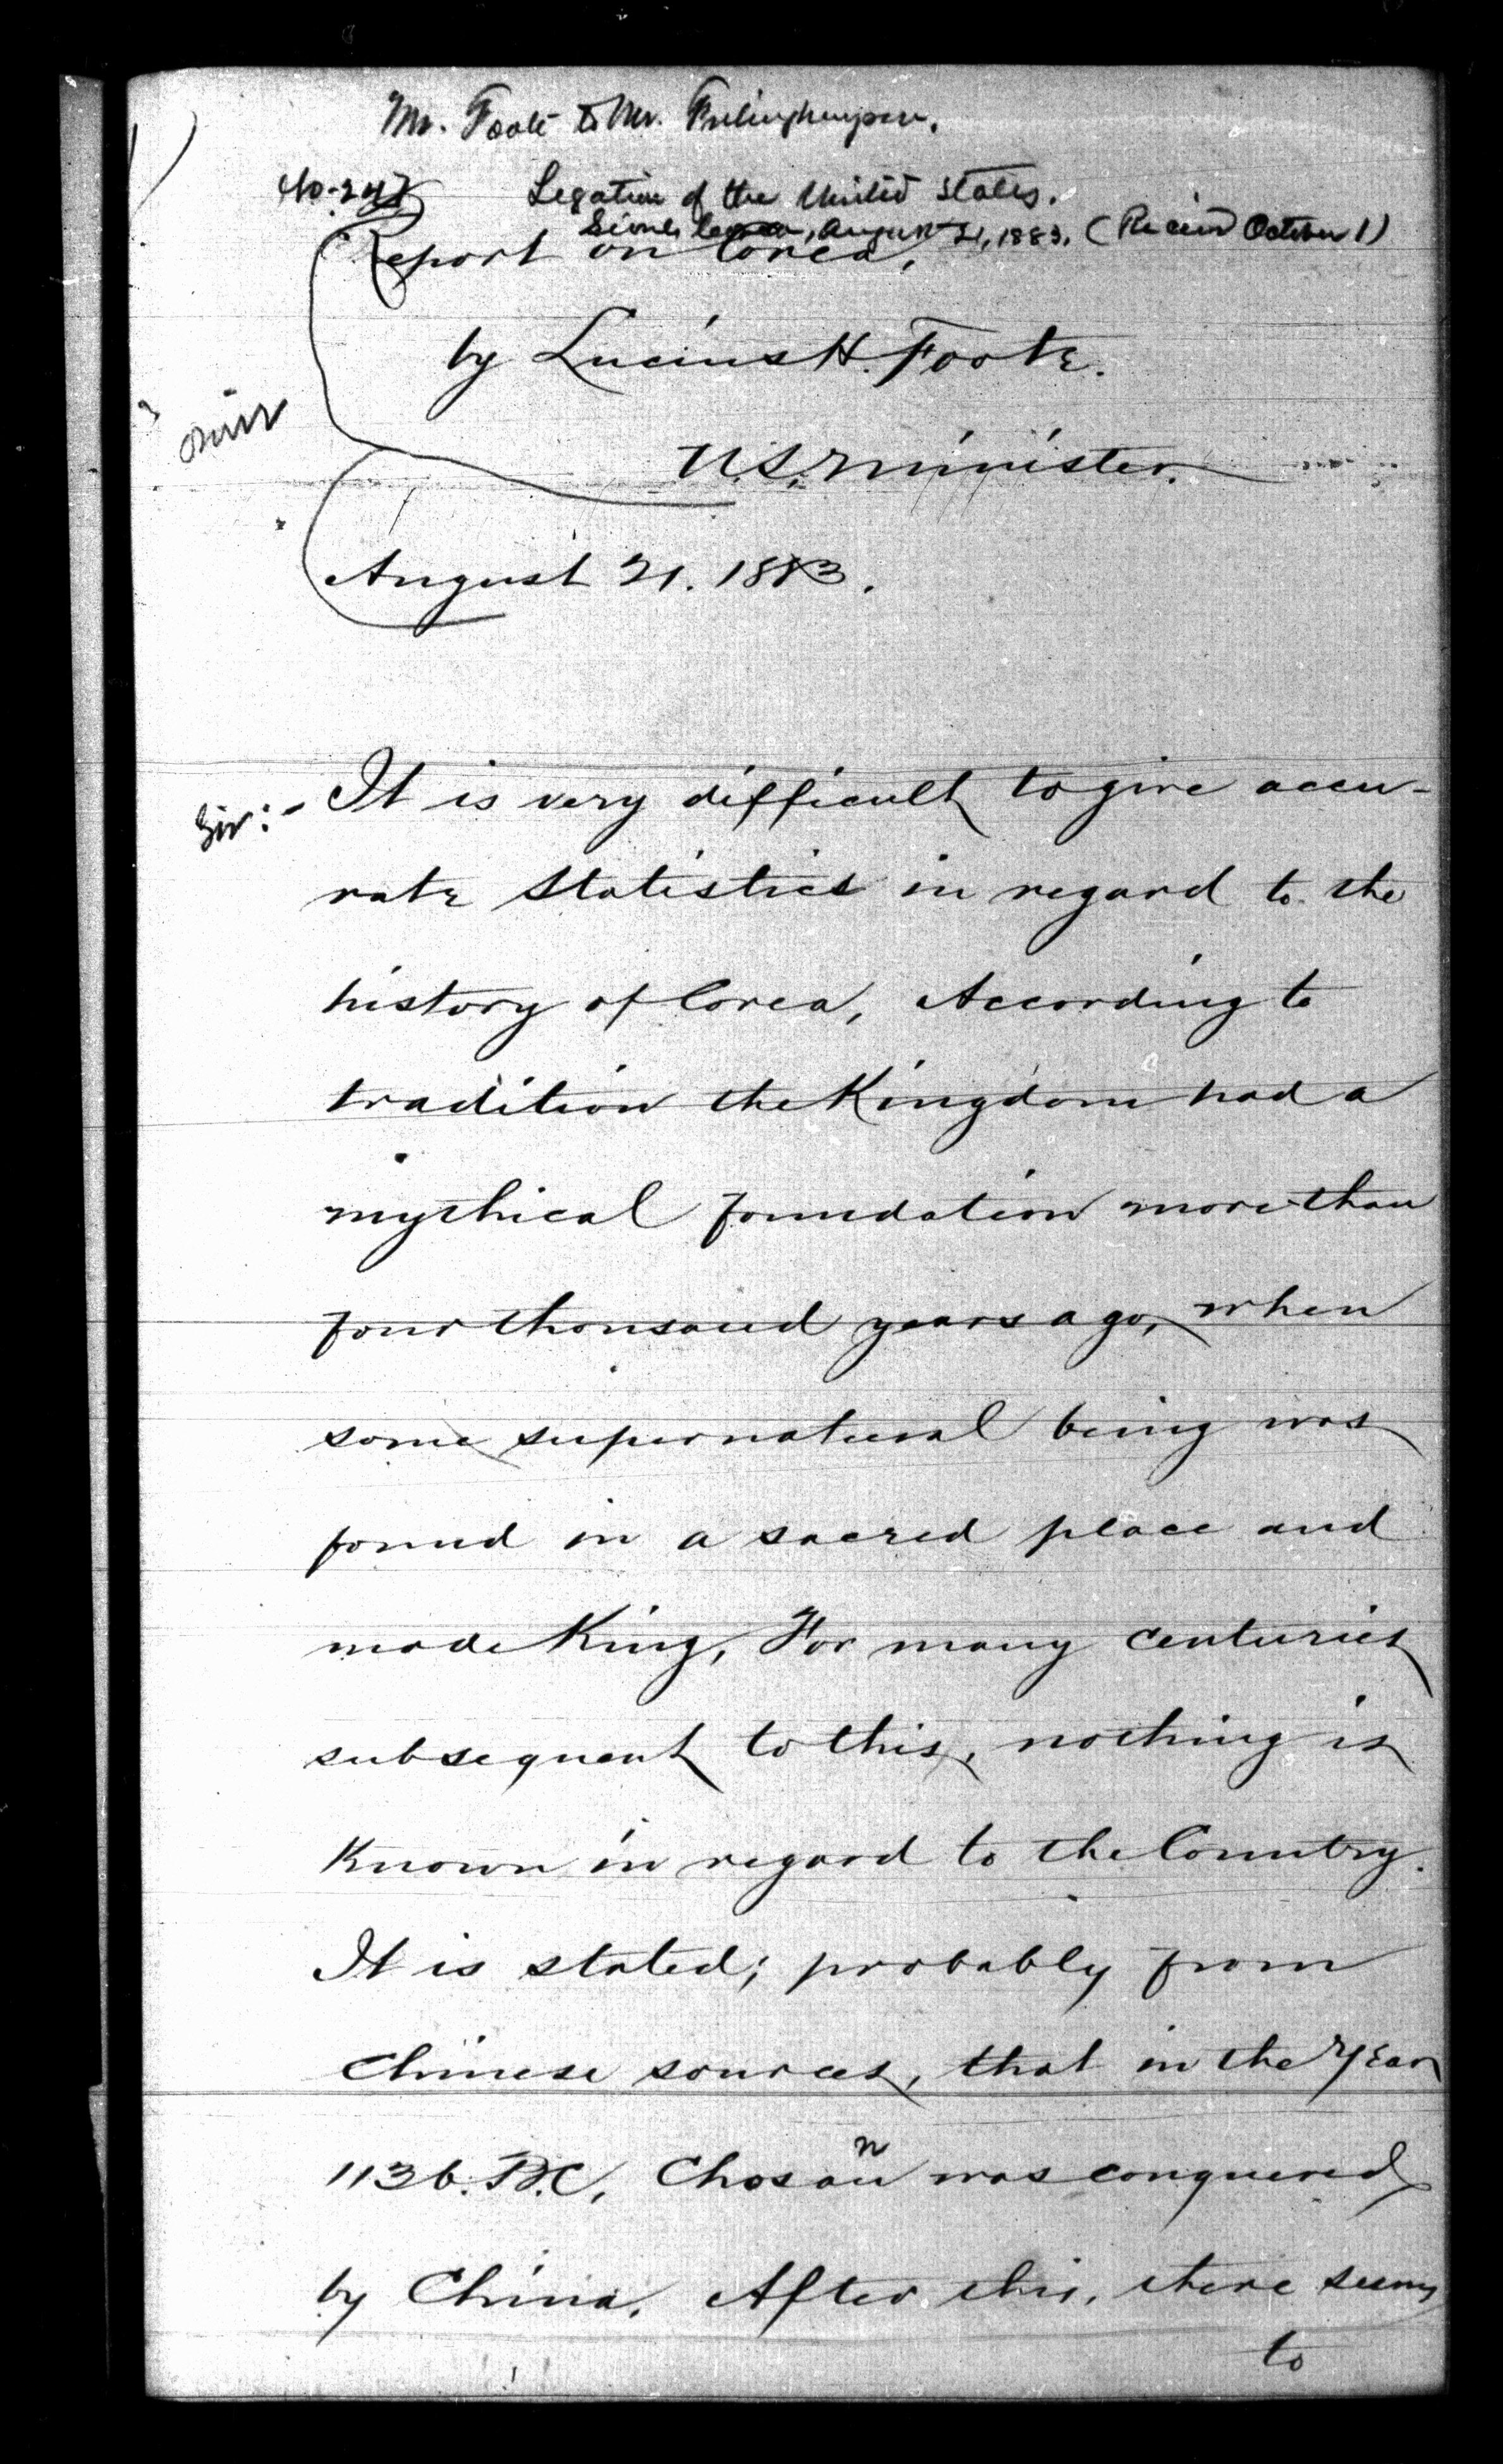 Mr. Foote to Mr. Frelinghuysen.
No. 24
Legation of the United States.
Seoul, Corea, August 21, 1883. (Received October 1)
Report on Corea,
by Lucius H. Foote.
U.S. Minister.
August 21. 1883.
Sir:- It is very difficult to give accu-
rate statistics in regard to the
history of Corea, According to
tradition the Kingdom had a
mythical foundation more than
four thousand years ago, when
some supernatural being was
found in a sacred place and
made King, For many centuries
subsequent to this, nothing is
Known in regard to the Country.
It is stated; probably from
Chinese sources, that in the Year
1136. B.C, Chosan was conquered
by China. After this, there seems
to